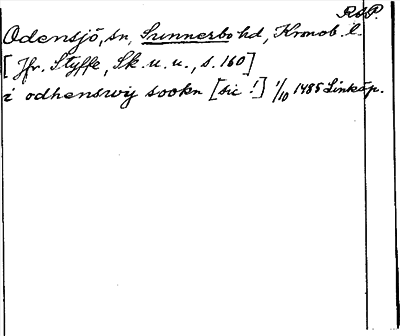 RAP.
Odensjö, sn, Sunnerbo hd, Kronob. l.
[Jfr. Styffe, Sk. u. u., s. 160]
i odhenswij sookn [sic!] 1/10 1485 Linköp.